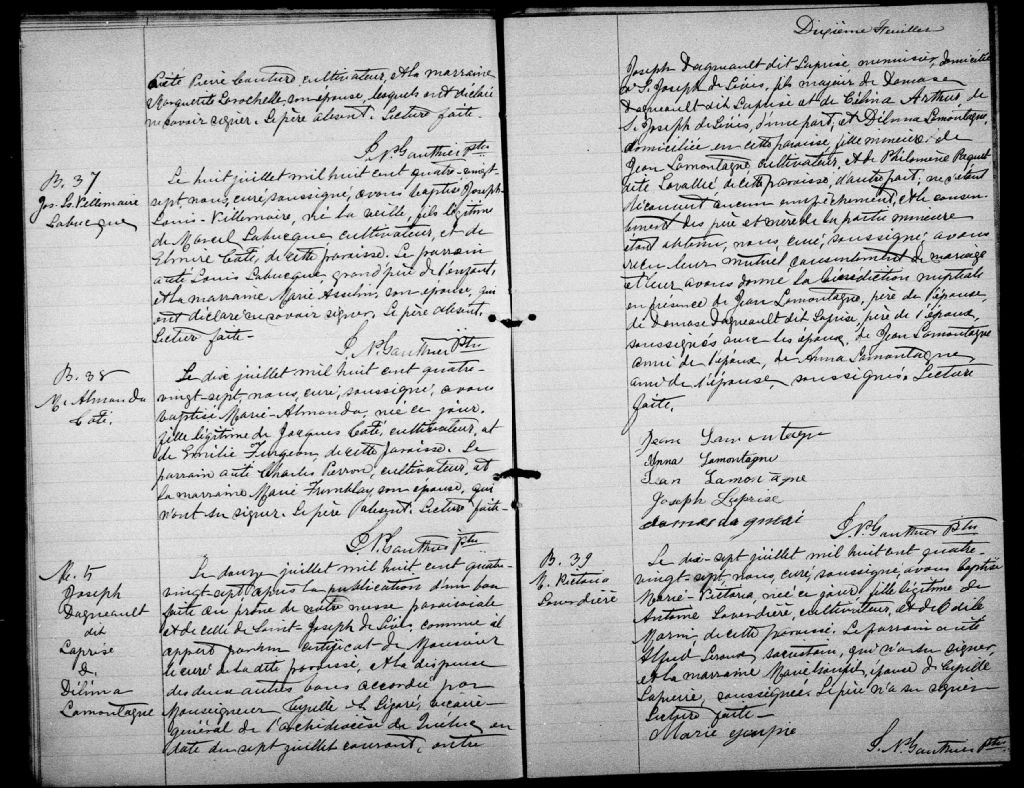 été Pierre Couture, cultivateur, et la marraine
Marguerite Larochelle, son épouse, lesquels ont déclaré
ne savoir signer. Le père absent. Lecture faite.
J. N. Gauthier Ptre
B. 37
Jos. Ls Villemaire
Labrecque
Le huit juillet mil huit cent quatre-vingt-
sept, nous, curé, soussigné, avons baptisé Joseph-
Louis-Villemaire, né la veille, fils légitime
de Marcel Labrecque cultivateur, et de
Elmire Coté, de cette paroisse. Le parrain
a été Louis Labrecque grand'père de l'enfant,
et la marraine Marie Asselin, son épouse, qui
ont déclaré ne savoir signer. Le père absent.
Lecture faite-
J. N. Gauthier Ptre
B. 38
M. Almanda
Coté.
Le dix juillet mil huit cent quatre-
vingt-sept, nous, curé, soussigné, avons
baptisé Marie-Almanda, née ce jour,
fille légitime de Jacques Coté, cultivateur, et
de Emilie Turgeon, de cette paroisse. Le
parrain a été Charles Perron, cultivateur, et
la marraine Marie Tremblay, son épouse, qui
n'ont su signer. Le père absent. Lecture faite-
J. N. Gauthier Ptre
M. 5
Joseph
Dagneault
dit
Laprise
&
Délima
Lamontagne
Le douze juillet mil huit cent quatre-
vingt-sept après la publication d'un ban
faite au prône de notre messe paroissiale
et de celle de Saint-Joseph de Lévis, comme il
appert par un certificat de Monsieur
le curé de la dite paroisse, et la dispense
des deux autres bans accordée par
Monseigneur Cyrille E. Légaré, vicaire-
général de l'archidiocèse de Québec, en
date du sept juillet courant, entre
Dixième Feuillet
Joseph Dagneault dit Laprise menuisier, domicilié
à St Joseph de Lévis, fils majeur de Damase
Dagneault dit Laprise et de Célina Arthur, de
St Joseph de Lévis, d'une part, et Délima Lamontagne,
domiciliée en cette paroisse, fille mineure de
Jean Lamontagne cultivateur, et de Philomène Paquet
dite Lavallée de cette paroisse, d'autre part; ne s'étant
découvert aucun empêchement, et le consen-
tement des père et mère de la partie mineure
étant obtenu, nous, curé, soussigné, avons
reçu leur mutuel consentement de mariage
et leur avons donné la bénédiction nuptiale
en présence de Jean Lamontagne, père de l'épouse,
de Damase Dagneault dit Laprise, père de l'époux,
soussignés avec les époux, de Jean Lamontagne
ami de l'époux, de Anna Lamontagne
amie de l'épouse, soussignés. Lecture
faite.
Jean Lamontagne
Anna Lamontagne
Jean Lamontagne
Joseph Laprise
damas
J. N. Gauthier Ptre
B. 39
M. Victoria
Laverdière
Le dix-sept juillet mil huit cent quatre-
vingt-sept, nous, curé, soussigné, avons baptisé
Marie-Victoria, née ce jour, fille légitime de
Antoine Laverdière, cultivateur, et de Odile
de cette paroisse. Le parrain a été
Alfred Leroux, sacristain, qui n'a su signer,
et la marraine Marie épouse de Cyrille
soussignée. Le père n'a su signer
Lecture faite-
Marie
J. N. Gauthier Ptre